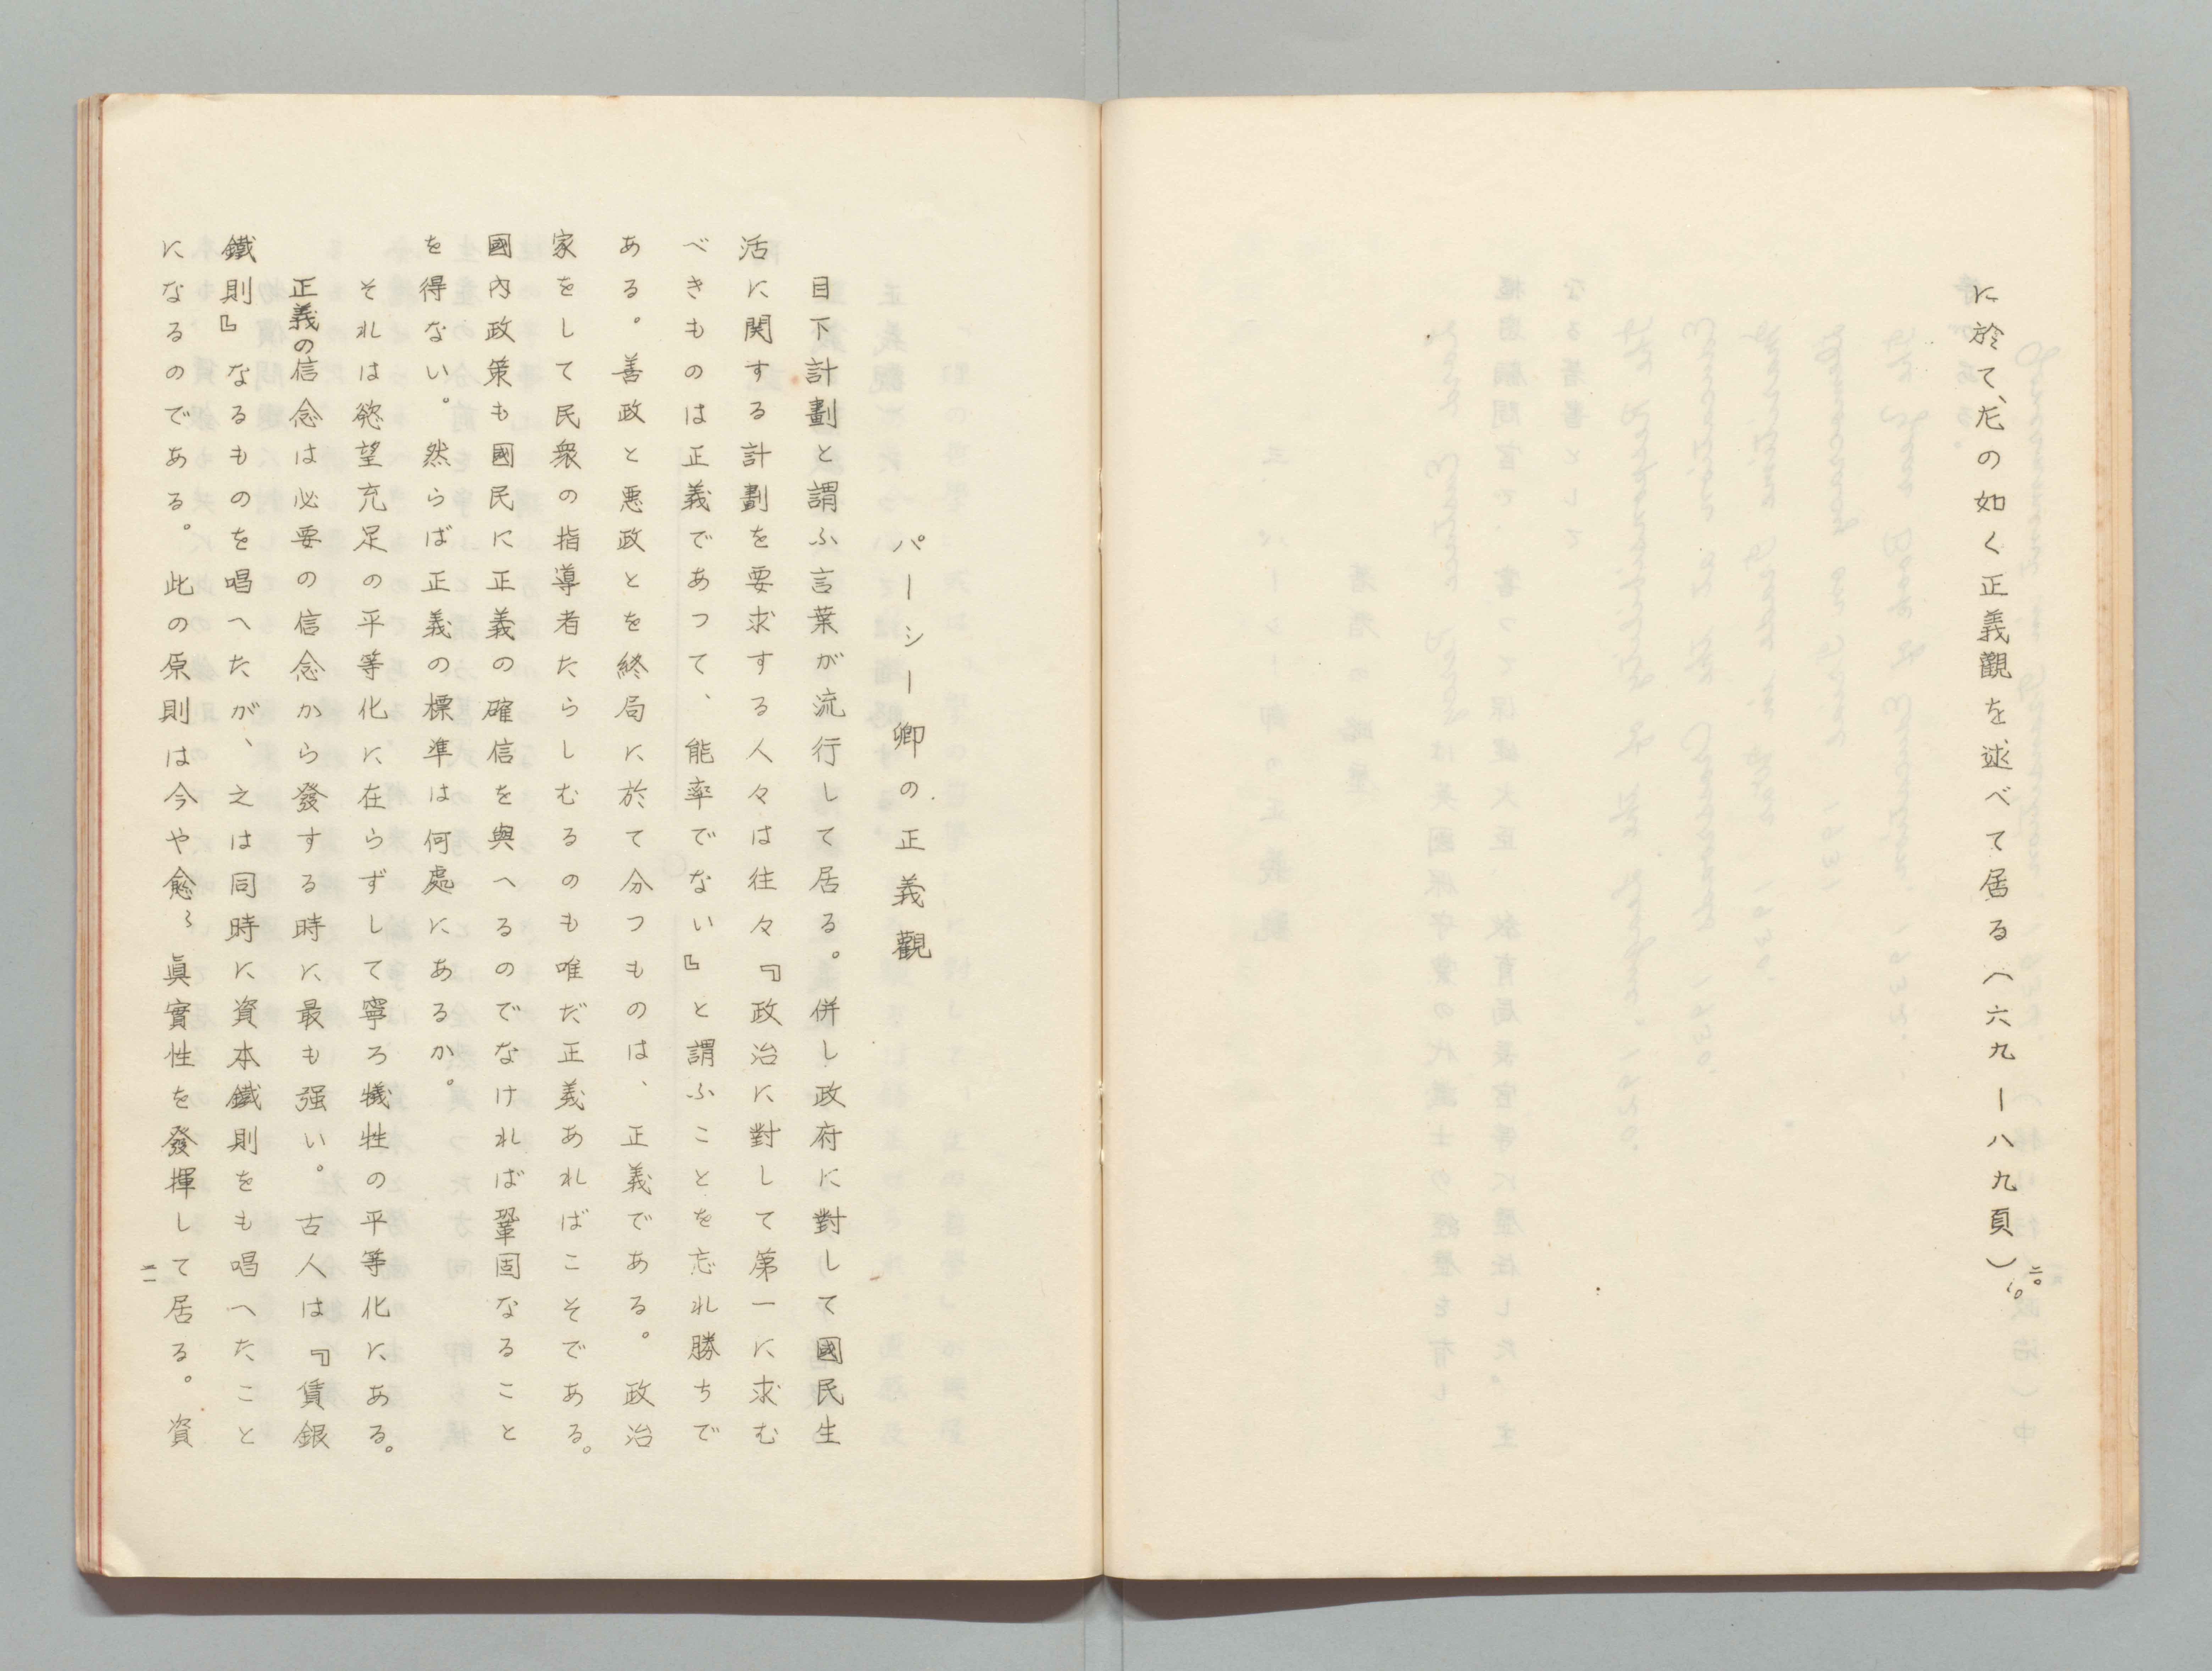 に於て、左の如く正義觀を述べて居る(六九ー八九頁)。
二〇
パーシー卿の正義觀
目下計劃と謂ふ言葉が流行して居る。併し政府に對して國民生
活に関する計劃を要求する人々は往々『政治に對して第一に求む
べきものは正義であつて、能率でない』と謂ふことを忘れ勝ちで
ある。善政と悪政とを終局に於て分つものは、正義である。政治
家をして民衆の指導者たらしむるのも唯だ正義あればこそである。
國内政策も國民に正義の確信を與へるのでなければ鞏固なること
を得ない。然らば正義の標準は何處にあるか。
それは慾望充足の平等化に在らずして寧ろ犠牲の平等化にある。
正義の信念は必要の信念から發する時に最も强い。古人は『賃銀
鐵則』なるものを唱へたが、之は同時に資本鐵則をも唱へたこと
になるのである。此の原則は今や愈〻眞實性を發揮して居る。資
二一